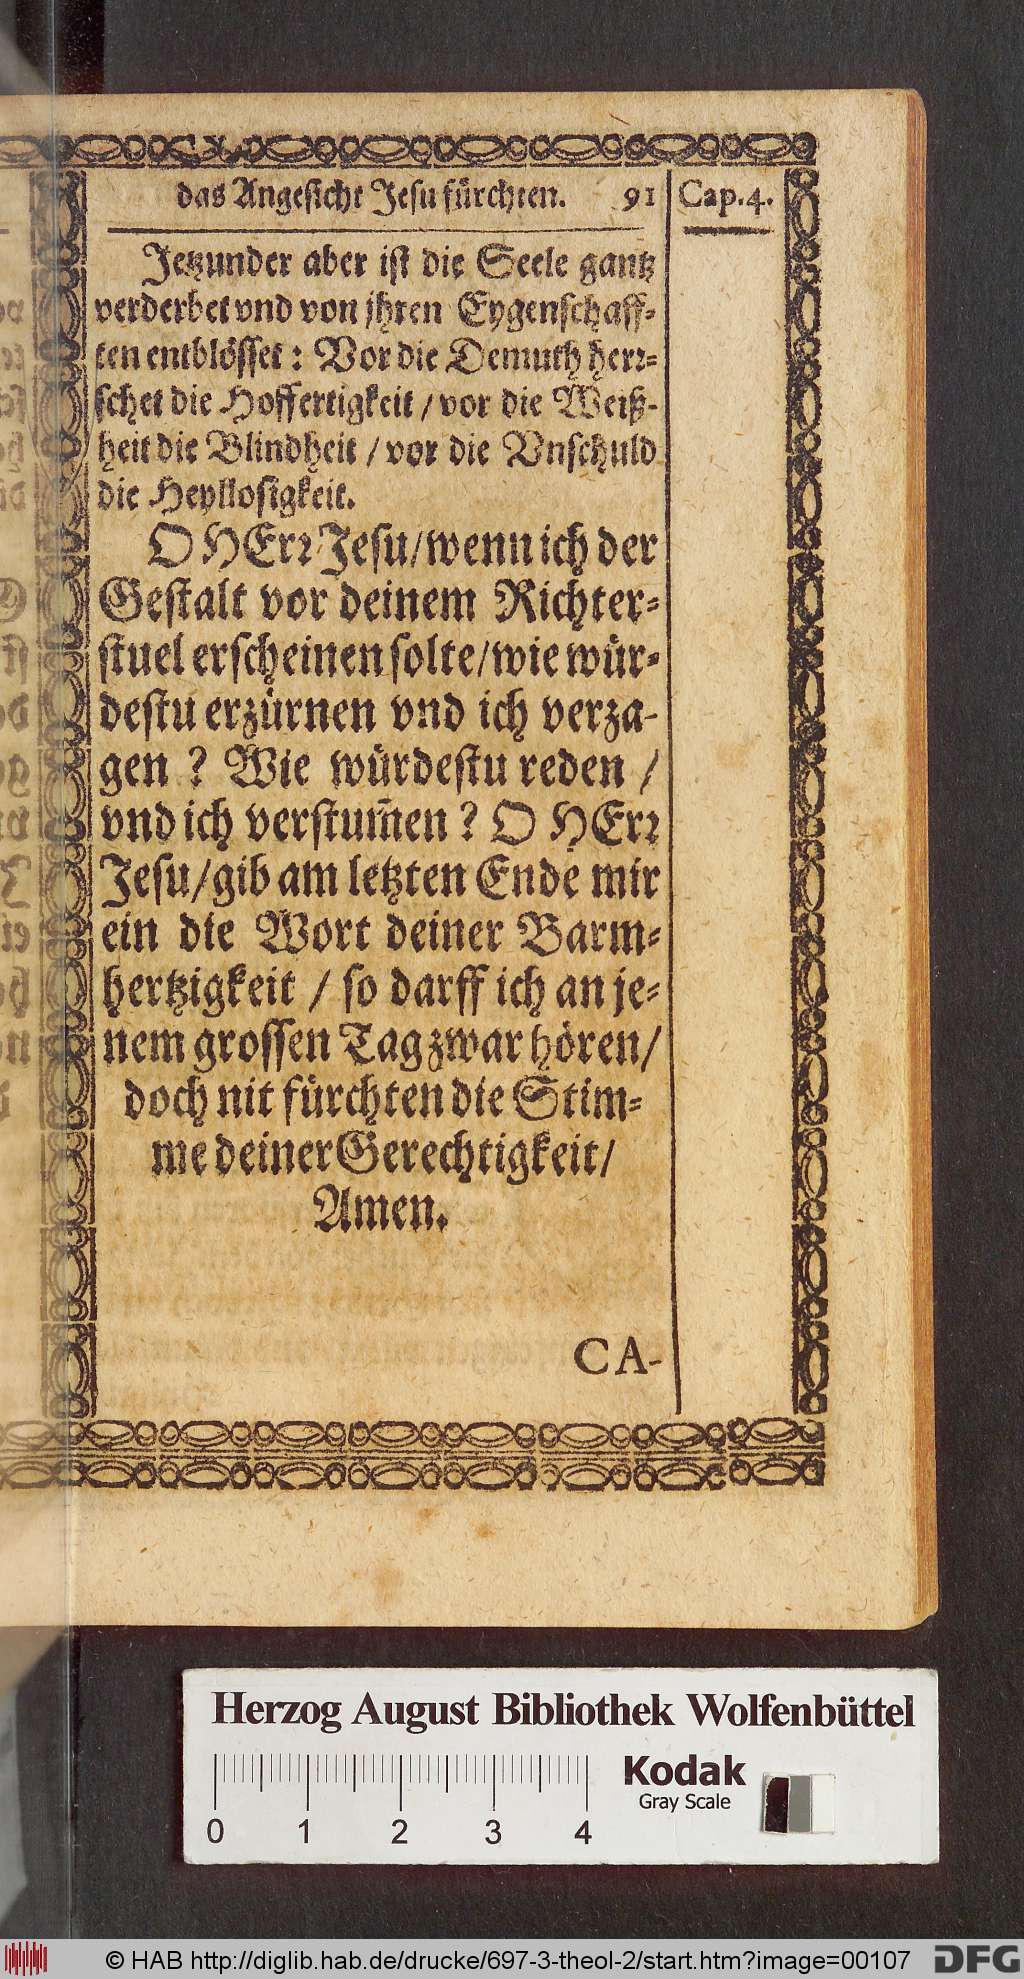 das Angesicht Jesu fürchten. 91 Cap. 4.
Jetzunder aber ist die Seele gantz
verderbet vnd von jhren Eygenschaff-
ten entblösset: Vor die Demuth herr-
schet die Hoffertigkeit / vor die Weiß-
heit die Blindheit / vor die Vnschuld
die Heyllosigkeit.
O HErr Jesu/wenn ich der
Gestalt vor deinem Richter-
stuel erscheinen solte/wie wür-
destu erzürnen vnd ich verza-
gen? Wie würdestu reden /
vnd ich verstum̄en? O HErr
Jesu/gib am letzten Ende mir
ein die Wort deiner Barm-
hertzigkeit / so darff ich an je-
nem grossen Tag zwar hören/
doch nit fürchten die Stim-
me deiner Gerechtigkeit/
Amen.
CA-
Herzog August Bibliothek Wolfenbüttel
Kodak
Gray Scale
0 1 2 3 4
© HAB http://diglib.hab.de/drucke/697-3-theol-2/start.htm?image=00107 DFG